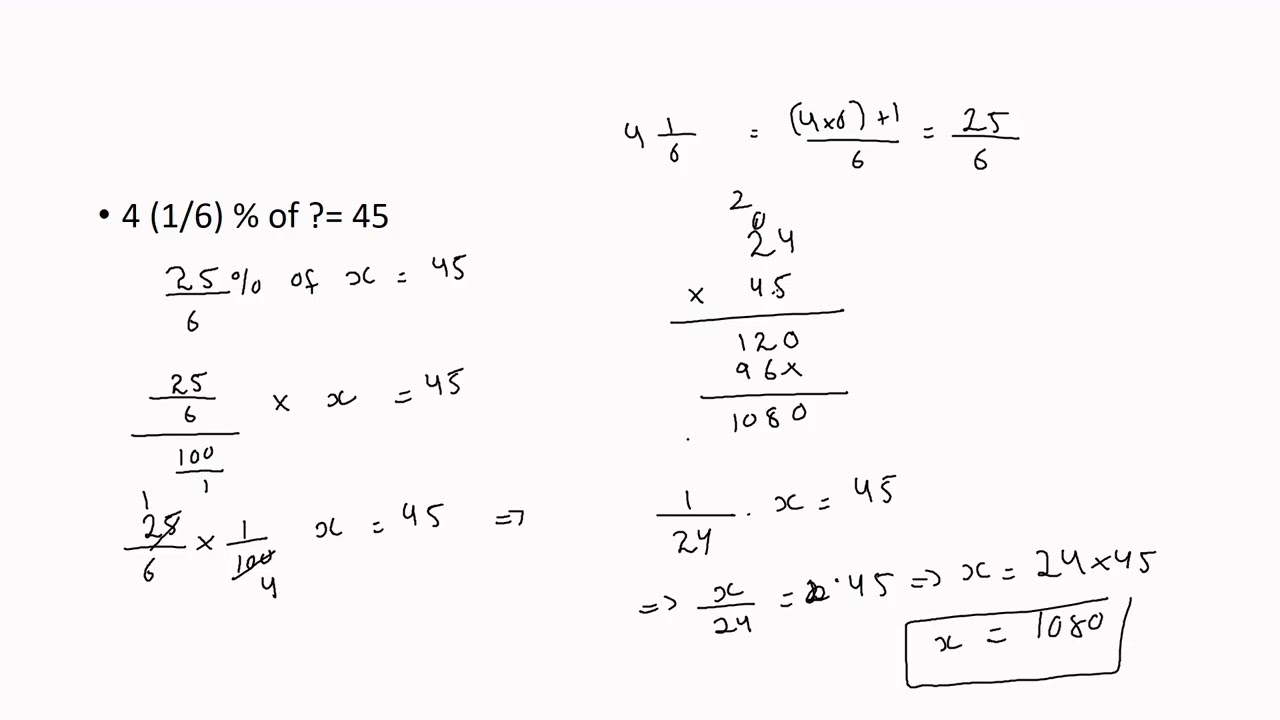 • 4 (1/6) % of ?= 45
25/6 % of x = 45
(25/6)/(100/1) × x = 45
1
25/6 × 1/100 x = 45 =>
4
4 1/6 = ((4×6)+1)/6 = 25/6
2
24
× 45
120
96×
1080
1/24 . x = 45
=> x/24 = 45 => x = 24×45
x = 1080